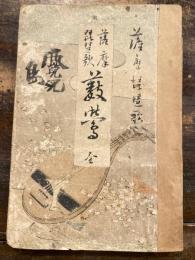 薩摩琵琶歌
薩摩
琵琶歌
藪鶯 全
島